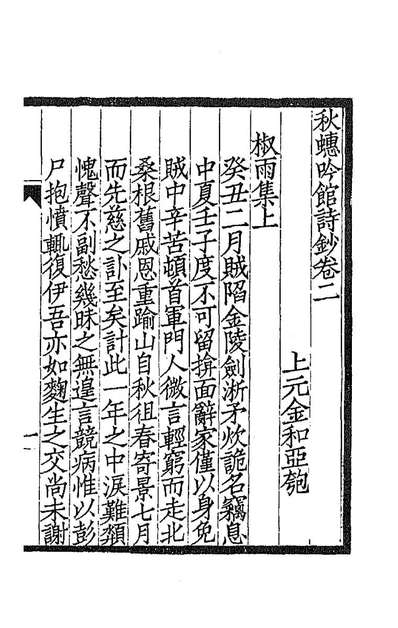 秋蟪吟館詩鈔卷二
上元金和亞匏
椒雨集上
癸丑二月賊陷金陵劍淅矛炊詭名竊息
中夏壬子度不可留揜面辭家僅以身免
賊中辛苦頓首軍門人微言輕窮而走北
桑根舊戚恩重踰山自秋徂春寄景七月
而先慈之訃至矣計此一年之中淚難頮
愧聲不副愁幾昧之無遑言競病惟以彭
尸抱憤輒復伊吾亦如麴生之交尚未謝
一